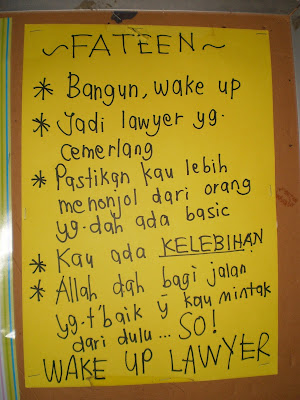 ~FATEEN~
* Bangun, wake up
* Jadi lawyer yg.
cemerlang
* Pastikan kau lebih
menonjol dari orang
yg. dah ada basic
* Kau ada KELEBIHAN
* Allah dah bagi jalan
yg. t'baik ȳ kau mintak
dari dulu... SO!
WAKE UP LAWYER